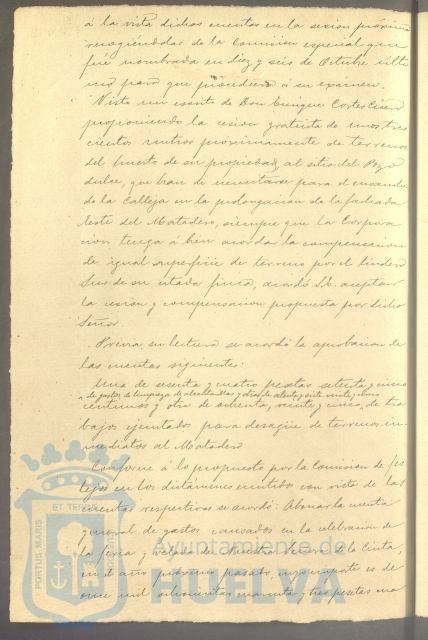 á la vista dichas cuentas en la sesion próxima
recogiéndolas de la Comision especial que
fué nombrada en diez y seis de Octubre últi
mo para que procediera á su examen.
Visto un escrito de Don Enrique Cortés
proponiendo la cesion gratuita de unos tres
cientos metros proximamente de terrenos
del huerto de su propiedad, al sitio del Pozo
dulce, que han de necesitarse para el ensanche
de la Calleja en la prolongacion de la fachada
Oeste del Matadero, siempre que la Corpora
cion tenga á bien acordar la compensacion
de igual superficie de terreno por el lindero
Sur de su citada finca, acordó S.E. aceptar
la cesion y compensacion propuesta por dicho
Señor.
Previa su lectura se acordó la aprobacion de
las cuentas siguientes:
Una de sesenta y cuatro pesetas setenta y cinco
de gastos de limpieza de alcantarillas y otras de
centimos y otra de ochenta, veinte y cinco, de tra
bajos ejecutados para desagüe de terrenos in
mediatos al Matadero
Conforme á lo propuesto por la Comision de Fes
tejos en los dictámenes emitidos con vista de las
cuentas respectivas se acordó: Abonar la cuenta
general de gastos causados en la celebracion de
la feria y velada de Nuestra Señora de la Cinta,
en el año próximo pasado, cuyo importe es de
once mil ochocientas cuarenta y tres pesetas
PORTUS MARIS ET TERRAE
Ayuntamiento de
HUELVA